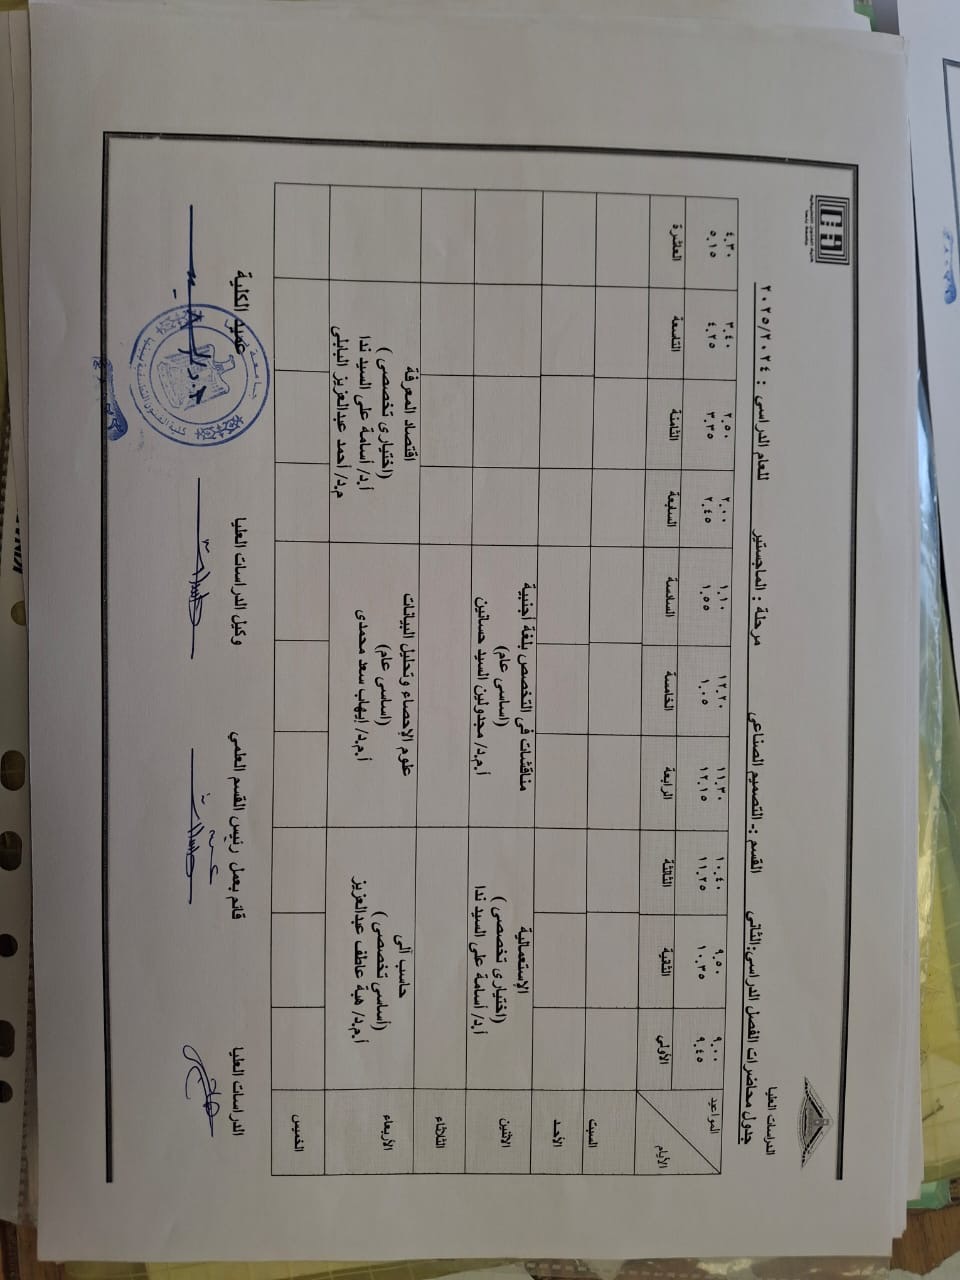 الدراسات العليا
جدول محاضرات الفصل الدراسى:الثانى القسم :ـ التصميم الصناعى مرحلة : الماجستير للعام الدراسي : ٢٠٢٥/٢٠٢٤
المواعيد
٩.٠٠ ٩.٥٠ ١٠.٤٠ ١١.٣٠ ١٢.٢٠ ١.١٠ ٢.٠٠ ٢.٥٠ ٣.٤٠ ٤.٣٠
٩.٤٥ ١٠.٣٥ ١١.٢٥ ١٢.١٥ ١.٠٥ ١.٥٥ ٢.٤٥ ٣.٣٥ ٤.٢٥ ٥.١٥
الأيام الأولي الثانية الثالثة الرابعة الخامسة السادسة السابعة الثامنة التاسعة العاشرة
السبت
الأحد
الاثنين
الإستعمالية
(اختيارى تخصصى )
أ.د/ أسامة على السيد ندا
مناقشات فى التخصص بلغة أجنبية
(أساسى عام)
أ.م.د/ مجدولين السيد حسانين
الثلاثاء
الأربعاء
حاسب آلى
(أساسى تخصصى )
أ.م.د/ هبة عاطف عبدالعزيز
علوم الإحصاء وتحليل البيانات
(اساسى عام)
أ.م.د/ إيهاب سعد محمدى
اقتصاد المعرفة
(اختيارى تخصصى )
أ.د/ أسامة على السيد ندا
م.د/ أحمد عبدالعزيز البابلى
الخميس
الدراسات العليا
قائم بعمل رئيس القسم العلمي
وكيل الدراسات العليا
عميد الكلية